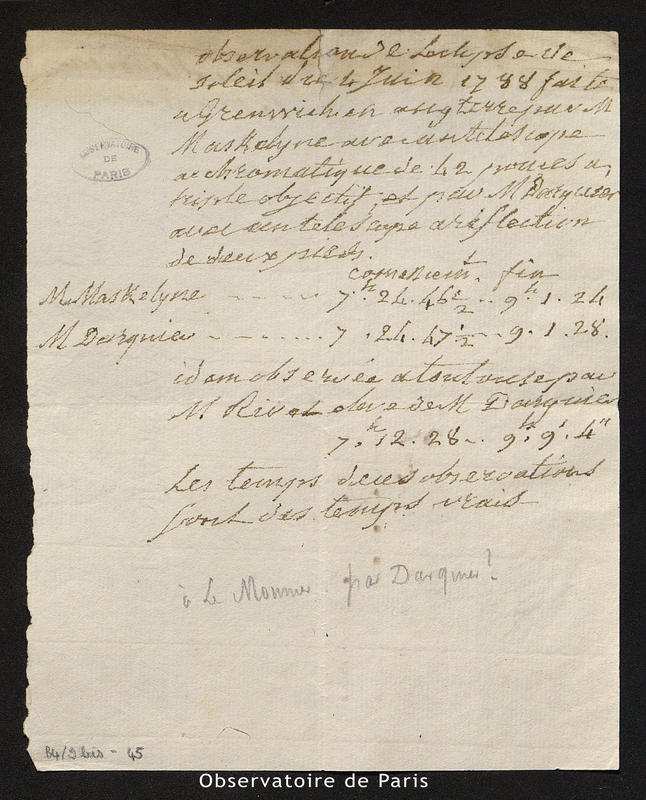 observation de Leclypse de
soleil du 4 Juin 1788 faite
a Grenwich en angterre par M
Maskelyne avec un telescope
achromatique de 42 pouces a
triple objectif, et par M Darquier
avec un telescope a reflection
de deux pieds.
comencemt. fin
M. Maskelyne ---- 7h. 24. 46 1/2 .. 9h. 1. 24
M Darquier ------ 7 . 24. 47 1/2 -- 9. 1. 28.
idem observée a toulouse par
M. Rivet eleve de M Darquier
7h. 12. 28 -. 9h. 9'. 4"
Les temps de ces observations
sont des temps vrais
à Le Monnier par Darquier?
OBSERVATOIRE
DE
PARIS
B4/9 bis - 45
Observatoire de Paris